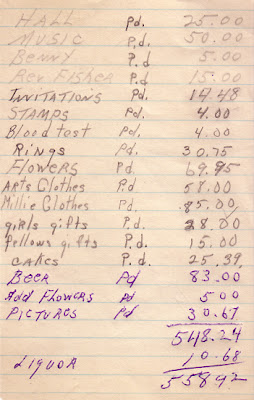 HALL Pd. 25.00
MUSIC P.d. 50.00
Benny P.d 5.00
Rev Fisher P.d. 15.00
INVITATIONS Pd. 14.48
STAMPS Pd. 4.00
Blood test Pd. 4.00
Rings Pd. 30.75
FLOWERS Pd. 69.95
Arts Clothes P.d. 58.00
Millie Clothes Pd. 85.00
girls gifts P.d. 28.00
fellows gifts P.d. 15.00
CAKES P.d. 25.39
BEER Pd 83.00
Add Flowers Pd 5 00
PICTURES Pd 30.67
548.24
LIQUOR 10.68
558 92